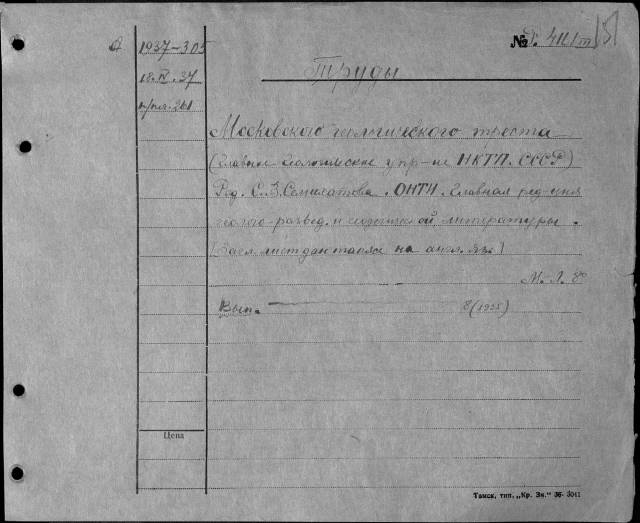 1937-305
18.IV.37
Труды
Московского геологического треста
(Главное геологическое упр-ие НКТП. СССР)
Ред. С.З.Семихатова. ОНТИ. Главная ред-ция
геолого-развед. и геодезической литературы.
(Загл. лист дан также на англ. яз.)
М. Л. 8°
Вып. 8(1935)
Цена
Томск, тип. „Кр. Зн." 36- 3041